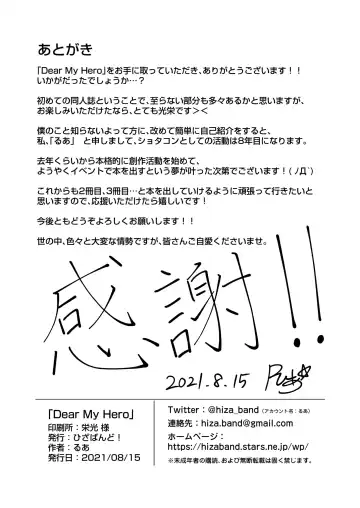 あとがき
「Dear My Hero」をお手に取っていただき、ありがとうございます！！
いかがだったでしょうか…？
初めての同人誌ということで、至らない部分も多々あるかと思いますが、
お楽しみいただけたなら、とても光栄です＞＜
僕のこと知らないよって方に、改めて簡単に自己紹介をすると、
私、「るあ」 と申しまして、ショタコンとしての活動は8年目になります。
去年くらいから本格的に創作活動を始めて、
ようやくイベントで本を出すという夢が叶った次第でございます！( ﾉД`)
これからも2冊目、3冊目…と本を出していけるように頑張って行きたいと
思いますので、応援いただけたら嬉しいです！
今後ともどうぞよろしくお願いします！！
世の中、色々と大変な情勢ですが、皆さんご自愛くださいませ。
感謝!!
2021.8.15
「Dear My Hero」
印刷所：栄光 様
発行：ひざばんど！
作者：るあ
発行日：2021/08/15
Twitter：@hiza_band（アカウント名：るあ）
連絡先：hiza.band@gmail.com
ホームページ：
https://hizaband.stars.ne.jp/wp/
※未成年者の購読、および無断転載は固く禁じます。